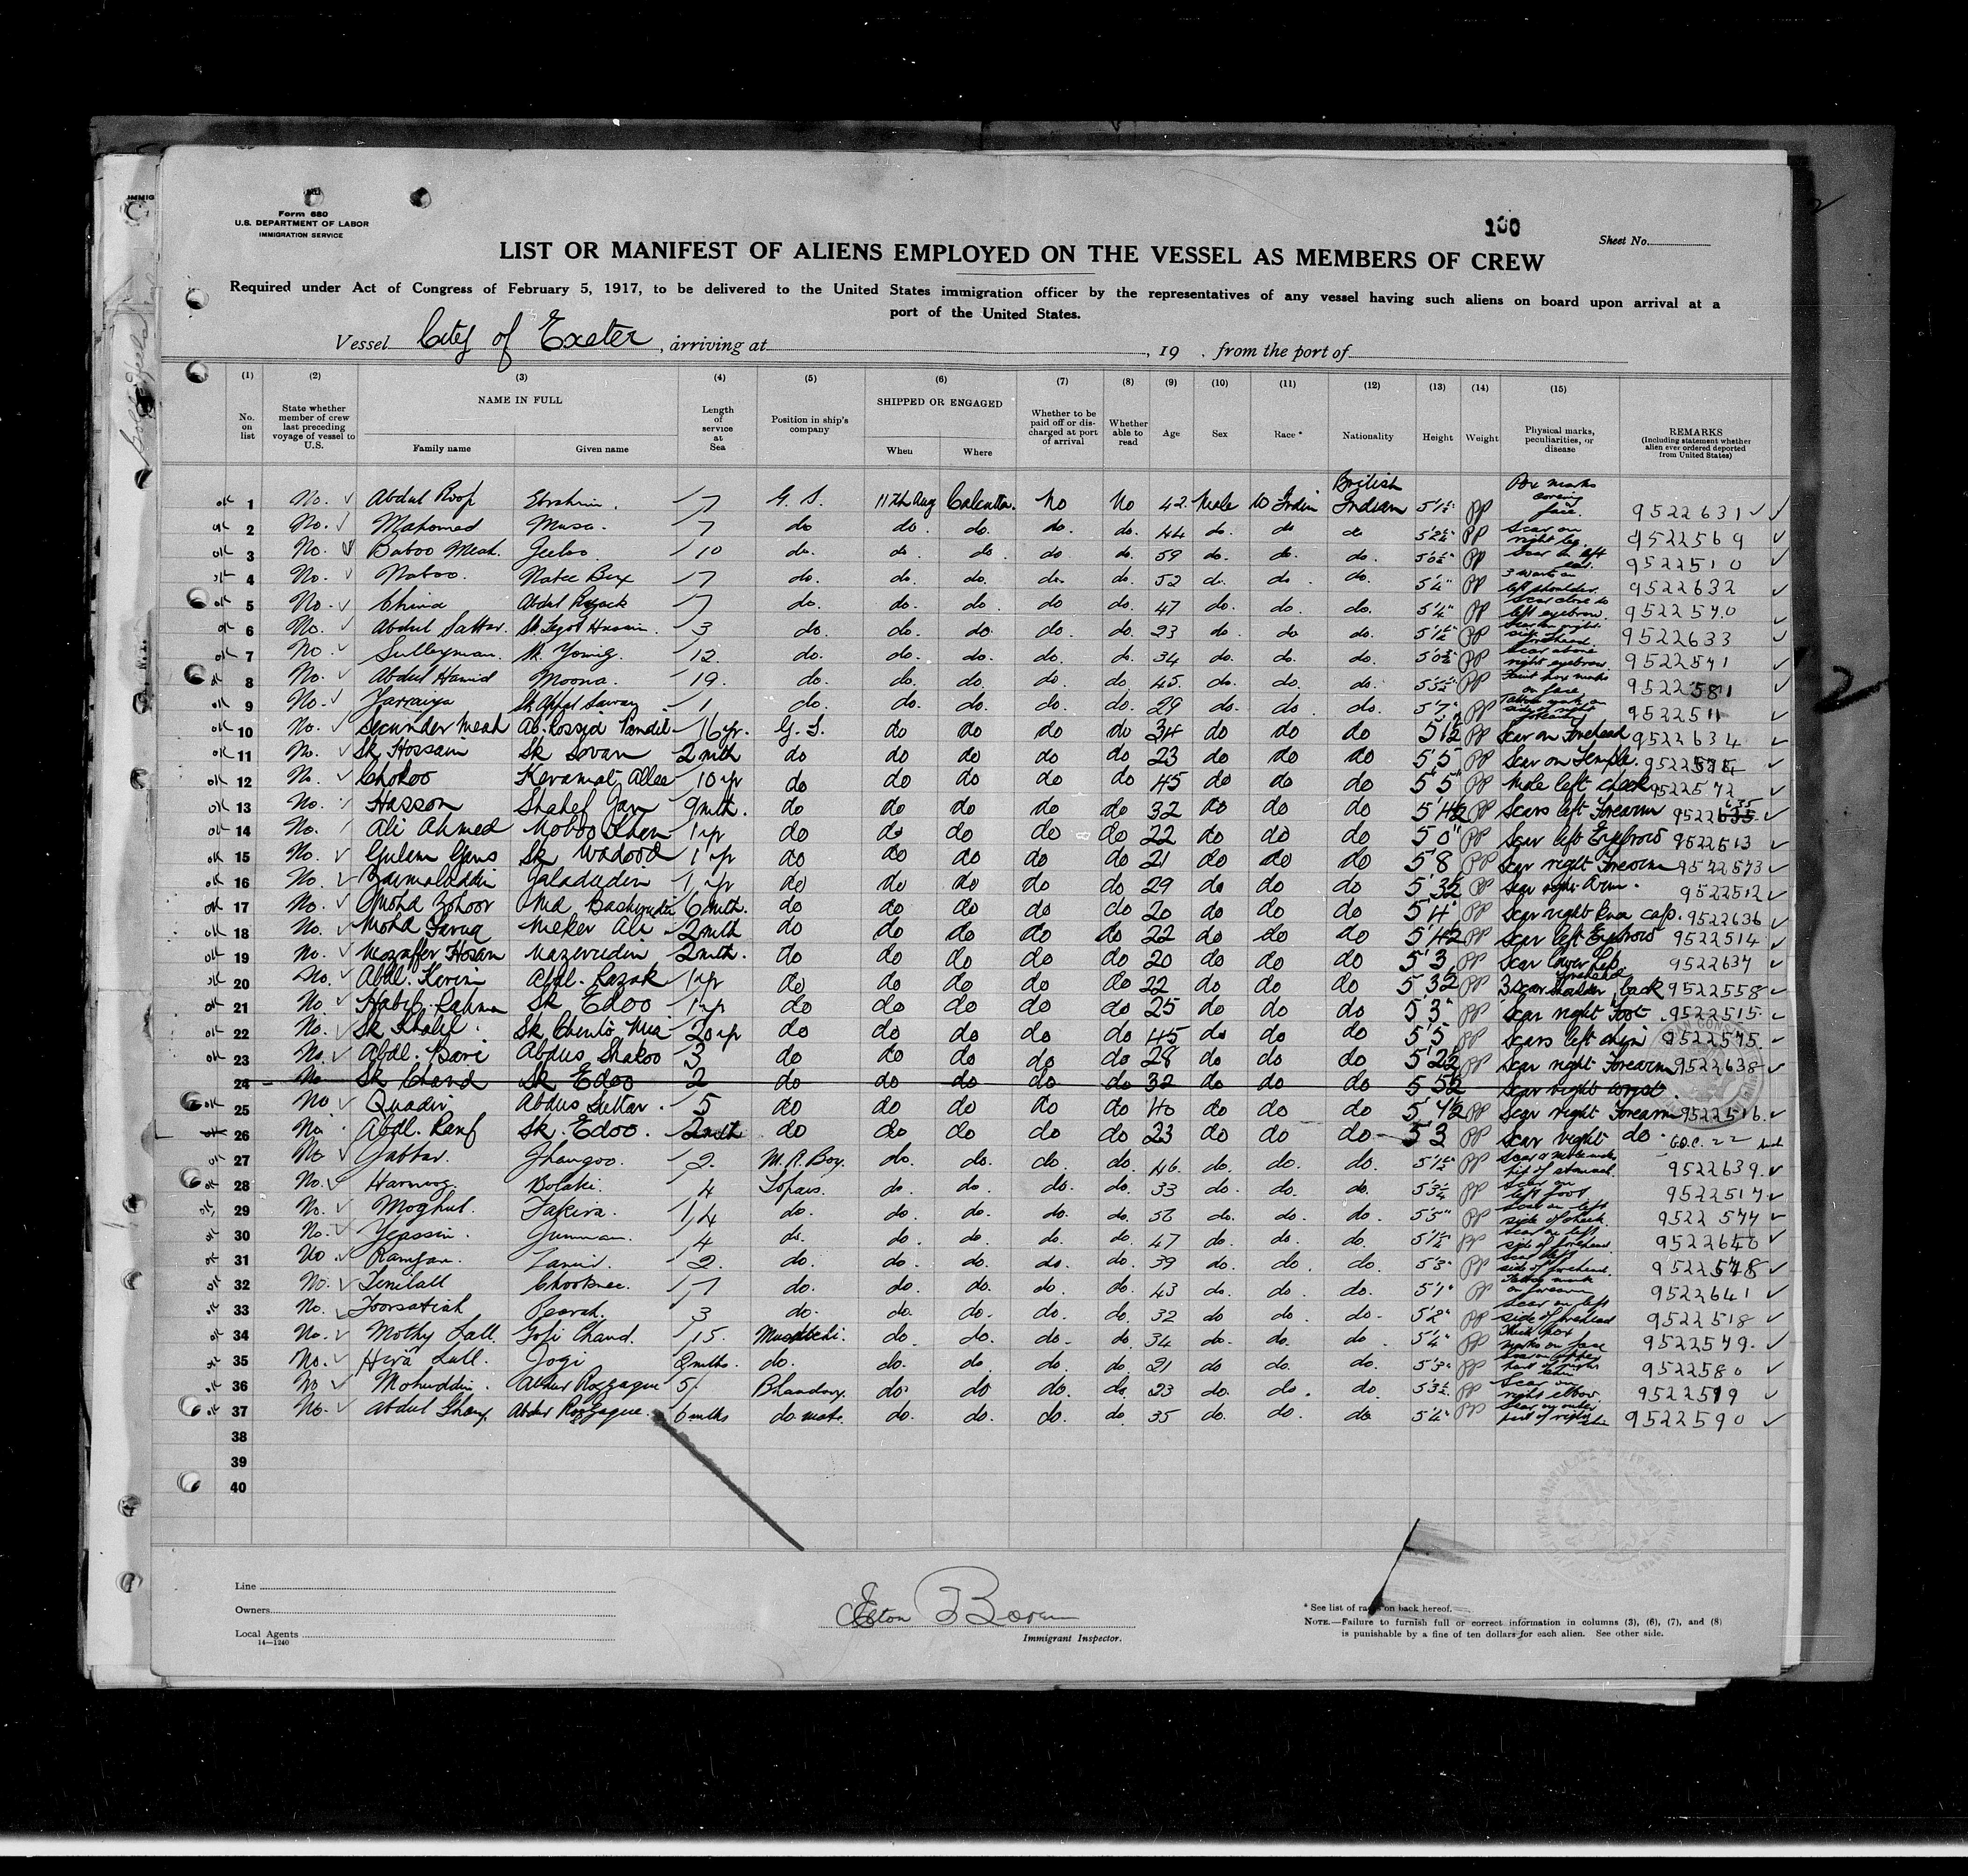 Form 680
U.S. DEPARTMENT OF LABOR
IMMIGRATION SERVICE
100
Sheet No.
LIST OR MANIFEST OF ALIENS EMPLOYED ON THE VESSEL AS MEMBERS OF CREW
Required under Act of Congress of February 5, 1917, to be delivered to the United States immigration officer by the representatives of any vessel having such aliens on board upon arrival at a
port of the United States.
Vessel City of Exeter, arriving at , 19 . from the port of
(1) (2) (3) (4) (5) (6) (7) (8) (9) (10) (11) (12) (13) (14) (15)
No. on list State whether member of crew last preceding voyage of vessel to U.S. NAME IN FULL Family name Given name Length of service at Sea Position in ship's company SHIPPED OR ENGAGED When Where Whether to be paid off or discharged at port of arrival Whether able to read Age Sex Race * Nationality Height Weight Physical marks, peculiarities, or disease REMARKS (Including statement whether alien ever ordered deported from United States)
ok 1 No. Abdul Roof Ebrahim. 7 G. S. 11th Aug Calcutta. No No 42 Male British Indian PP Pox marks face. 9522631
2 No. Mahomed Musa. 7 do do. do. do. do. 44 do. do do PP Scar on right leg. 9522569
ok 3 No. Baboo Meah. 10 do. do do. do do. 59 do. do. do. PP Scar on left ear. 9522510
4 No. Naboo. Nabee Bux 7 do. do. do. do. do. 52 do. do. do. 5'4" PP left shoulder. 9522632
ok 5 No. China Abdul 7 do. do. do. do do. 47 do. do. do. 5'4" PP Scar close to left eyebrow. 9522570
ok 6 No. Abdul Sattar. 3 do. do. do. do. do. 23 do. do do. PP side forehead. 9522633
ok 7 No. Sulleyman. 12. do. do. do. do. do. 34 do. do. do. PP Scar above right eyebrow. 9522571
ok 8 No. Abdul Hamid Moona. 19. do. do. do. do. do. 45. do. do. do. PP Faint pox marks on face 9522581
ok 9 No. 1 do. do. do. do. do. 29 do. do. do. 5'7" PP 9522511
ok 10 No. Secunder Meah 16 yr. G. S. do do do do 34 do do do PP Scar on Forehead 9522634
ok 11 No. Sk Hossain Sk Sovan 2 mth do do do do do 23 do do do 5'5" PP Scar on Temple.
ok 12 No. Chokoo Keramat Allee 10 yr do do do do do 45 do do do 5'5" PP Mole left cheek 9522572
ok 13 No. Hasson 9 mth. do do do do do 32 do do do PP Scars left Forearm 9522635
ok 14 No. Ali Ahmed 1 yr do do do do do 22 do do do 5'0" PP Scar left Eyebrow 9522513
ok 15 No. Sk Wadood 1 yr do do do do do 21 do do do 5'8 PP Scar right Forearm 9522573
ok 16 No. Jaladudin 1 yr do do do do do 29 do do do PP Scar arm. 9522512
ok 17 No. Moha Zohoor 6 mth. do do do do do 20 do do do 5'4" PP Scar right Knee cap. 9522636
ok 18 No. Moha Faruq Meher Ali 2 mth do do do do do 22 do do do PP Scar left Eyebrow 9522514
ok 19 No. Mozaffer Hosan Nazerudin 2 mth. do do do do do 20 do do do 5'3 PP Scar lower Lip 9522637
ok 20 No. Abdl. Karim Abdl. Razak 1 yr do do do do do 22 do do do PP back 9522558
ok 21 No Habib. Rahma Sk Edoo 1 yr do do do do do 25 do do do 5'3" PP Scar right Foot. 9522515
ok 22 No. Sk Khalil. Sk 20 yr do do do do do 45 do do do 5'5" PP Scars left chin 9522575
ok 23 No. Abdl. Bari Abdus Shakoo 3 do do do do do 28 do do do PP Scar right Forearm 9522638
24 No Sk Chand Sk Edoo 2 do do do do do 32 do do do Scar right wrist.
ok 25 No Quadir Abdus Suttar. 5 do do do do do 40 do do do PP Scar right Forearm 9522516.
26 No Abdl. Rauf Sk. Edoo. 2 mth do do do do do 23 do do do 5'3 PP Scar right do.
ok 27 No Jabbar. Jhangoo. 2. M. R. Boy. do. do. do. do. 46. do. do. do. PP 9522639.
ok 28 No. Bolaki. 4 Topass. do. do. do. do. 33 do. do. do. PP Scar on left foot. 9522517
ok 29 No. Moghul. Fakira. 14 do. do. do. do. do. 56 do. do. do. 5'5" PP Scar on left side of cheek. 9522577
ok 30 No. Yeassin. Jumman. 4 do. do. do. do. do. 47 do. do. do. PP Scar on left side of forehead. 9522640
ok 31 No Ramjan. 2. do. do. do. do. do. 39 do. do. do. 5'3" PP Scar left side of forehead. 9522578
ok 32 No. 7 do. do. do. do. do. 43 do. do. do. 5'1" PP Tattoo mark on forearm 9522641
ok 33 No. 3 do. do. do. do. do. 32 do. do. do. 5'2" PP Scar on left side of forehead 9522518
ok 34 No. Mothy Lall. Gopi Chand. 15. do. do. do. do. 34 do. do. do. 5'4" PP marks on face 9522579.
ok 35 No. Hira Lall. Jogi 8 mths. do. do. do. do. do. 21 do do. do. 5'3" PP 9522580
ok 36 No Mohuddin. Abdur Rozzaque 5. Bhandary. do. do do. do. 23 do. do. do. PP Scar on right elbow. 9522519
ok 37 No. Abdul Ghany. Abdur Rozzaque. 6 mths do. mate. do. do. do. do. 35 do. do. do. 5'4" PP 9522590
38
39
40
Line
Owners
Local Agents
14—1240
Immigrant Inspector.
* See list of races on back hereof.
NOTE.—Failure to furnish full or correct information in columns (3), (6), (7), and (8)
is punishable by a fine of ten dollars for each alien. See other side.
2